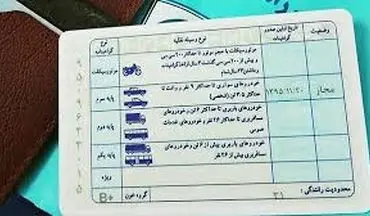 وضعیت
تاریخ اولین صدور گواهینامه
نوع وسیله نقلیه
نوع گواهینامه
موتورسیکلت با حجم موتور تا حداکثر ۲۰۰ سی سی
و بیش از ۲۰۰ سی سی
موتورسیکلت
مجاز
۱۳۹۵/۱۱/۲۰
خودروهای سواری تا حداکثر ۹ نفر و وانت تا
حداکثر ۳.۵ تن
پایه سوم
خودروهای باربری تا حداکثر ۶ تن و خودروهای
مسافربری تا حداکثر ۲۶ نفر و خودروهای خدمات
عمومی
پایه دوم
خودروهای باربری بیش از ۶ تن و خودروهای
مسافربری بیش از ۲۶ نفر
پایه یکم
ویژه
محدودیت رانندگی :
۲۱
گروه خون
B+